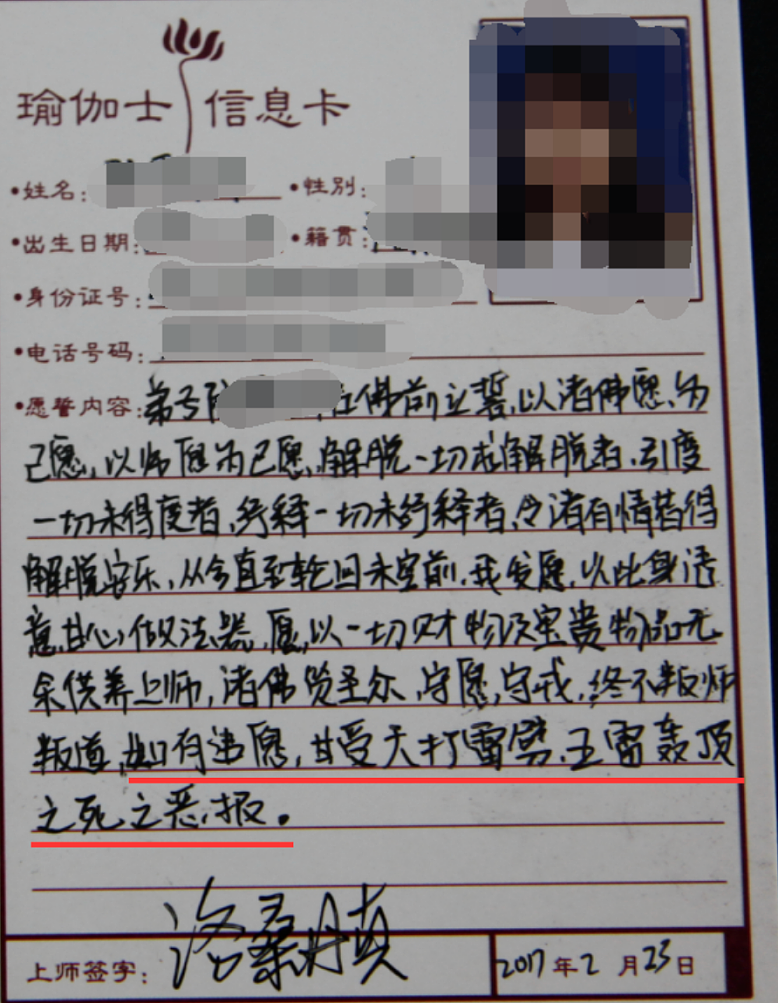 瑜伽士 信息卡
•姓名： •性别：
•出生日期： •籍贯：
•身份证号：
•电话号码：
•愿誓内容：弟子 在佛前立誓，以诸佛愿为
己愿，以师愿为己愿，解脱一切求解脱者，引度
一切未得度者，纾释一切未纾释者，令诸有情皆得
解脱安乐，从今直至轮回未空前，我发愿，以此身语
意，甘心做法器，愿以一切财物及宝贵物品无
余供养上师，诸佛 圣尔，守愿，守戒，终不叛师
叛道，如有违愿，甘受天打雷劈，五雷轰顶
之死之恶报。
上师签字： 洛桑丹真 2017年2月23日